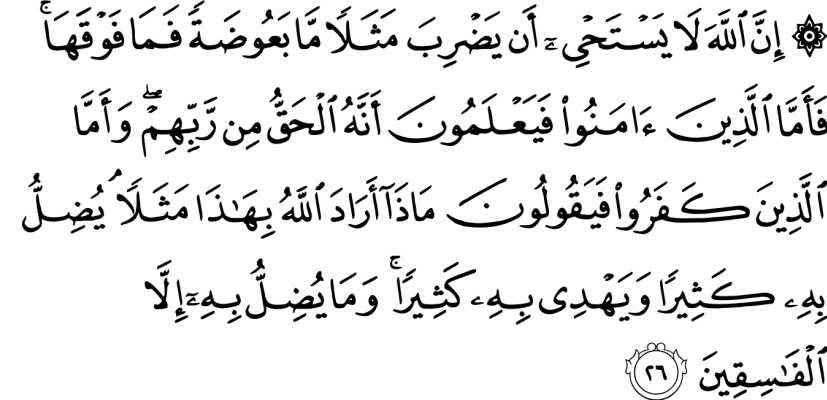 ۞ إِنَّ ٱللَّهَ لَا يَسْتَحْىِۦٓ أَن يَضْرِبَ مَثَلًا مَّا بَعُوضَةً فَمَا فَوْقَهَا ۚ
فَأَمَّا ٱلَّذِينَ ءَامَنُوا۟ فَيَعْلَمُونَ أَنَّهُ ٱلْحَقُّ مِن رَّبِّهِمْ ۖ وَأَمَّا
ٱلَّذِينَ كَفَرُوا۟ فَيَقُولُونَ مَاذَآ أَرَادَ ٱللَّهُ بِهَٰذَا مَثَلًا ۘ يُضِلُّ
بِهِۦ كَثِيرًا وَيَهْدِى بِهِۦ كَثِيرًا ۚ وَمَا يُضِلُّ بِهِۦٓ إِلَّا
ٱلْفَٰسِقِينَ ٢٦